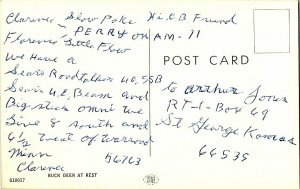 Clarence Slow Poke Hi C.B Friend
PERRY ON AM-11
Florence Little Flow
We Have a
Sears Roadtalker 40, SSB
Sears 40, Beam and
Big stick omni We
Live 8 south and
6 1/2 West of Warroad
Minn
56763
Clarence
POST CARD
to Arthur Jones
RT-1-Box 69
St George Kansas
66535
S10017
BUCK DEER AT REST